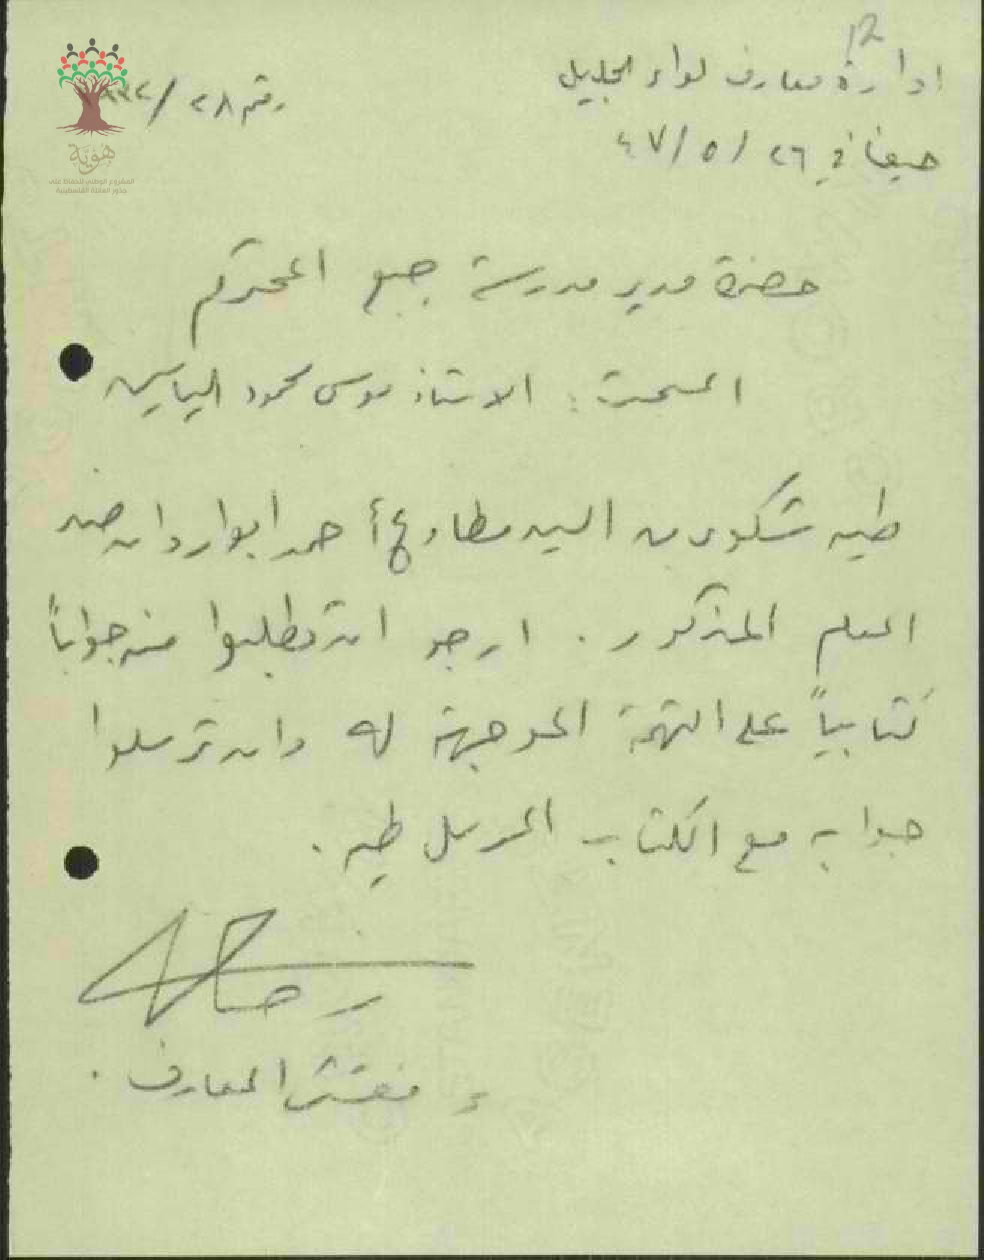 12
ادارة معارف لواء الجليل
رقم ٢٨/
حيفا في ٢٦/٥/٤٧
حضرة مدير مدرسة جبع المحترم
المبحث : الاستاذ موسى محمود الياسين
طيه شكوى من السيد مطاوع أحمد ابو اردان ضد
المعلم المذكور . ارجو ان تطلبوا منه جواباً
كتابياً على التهمة الموجهة له وان ترسلوا
جوابه مع الكتاب المرسل طيه .
مفتش المعارف .
هوية
المشروع الوطني للحفاظ على
جذور العائلة الفلسطينية